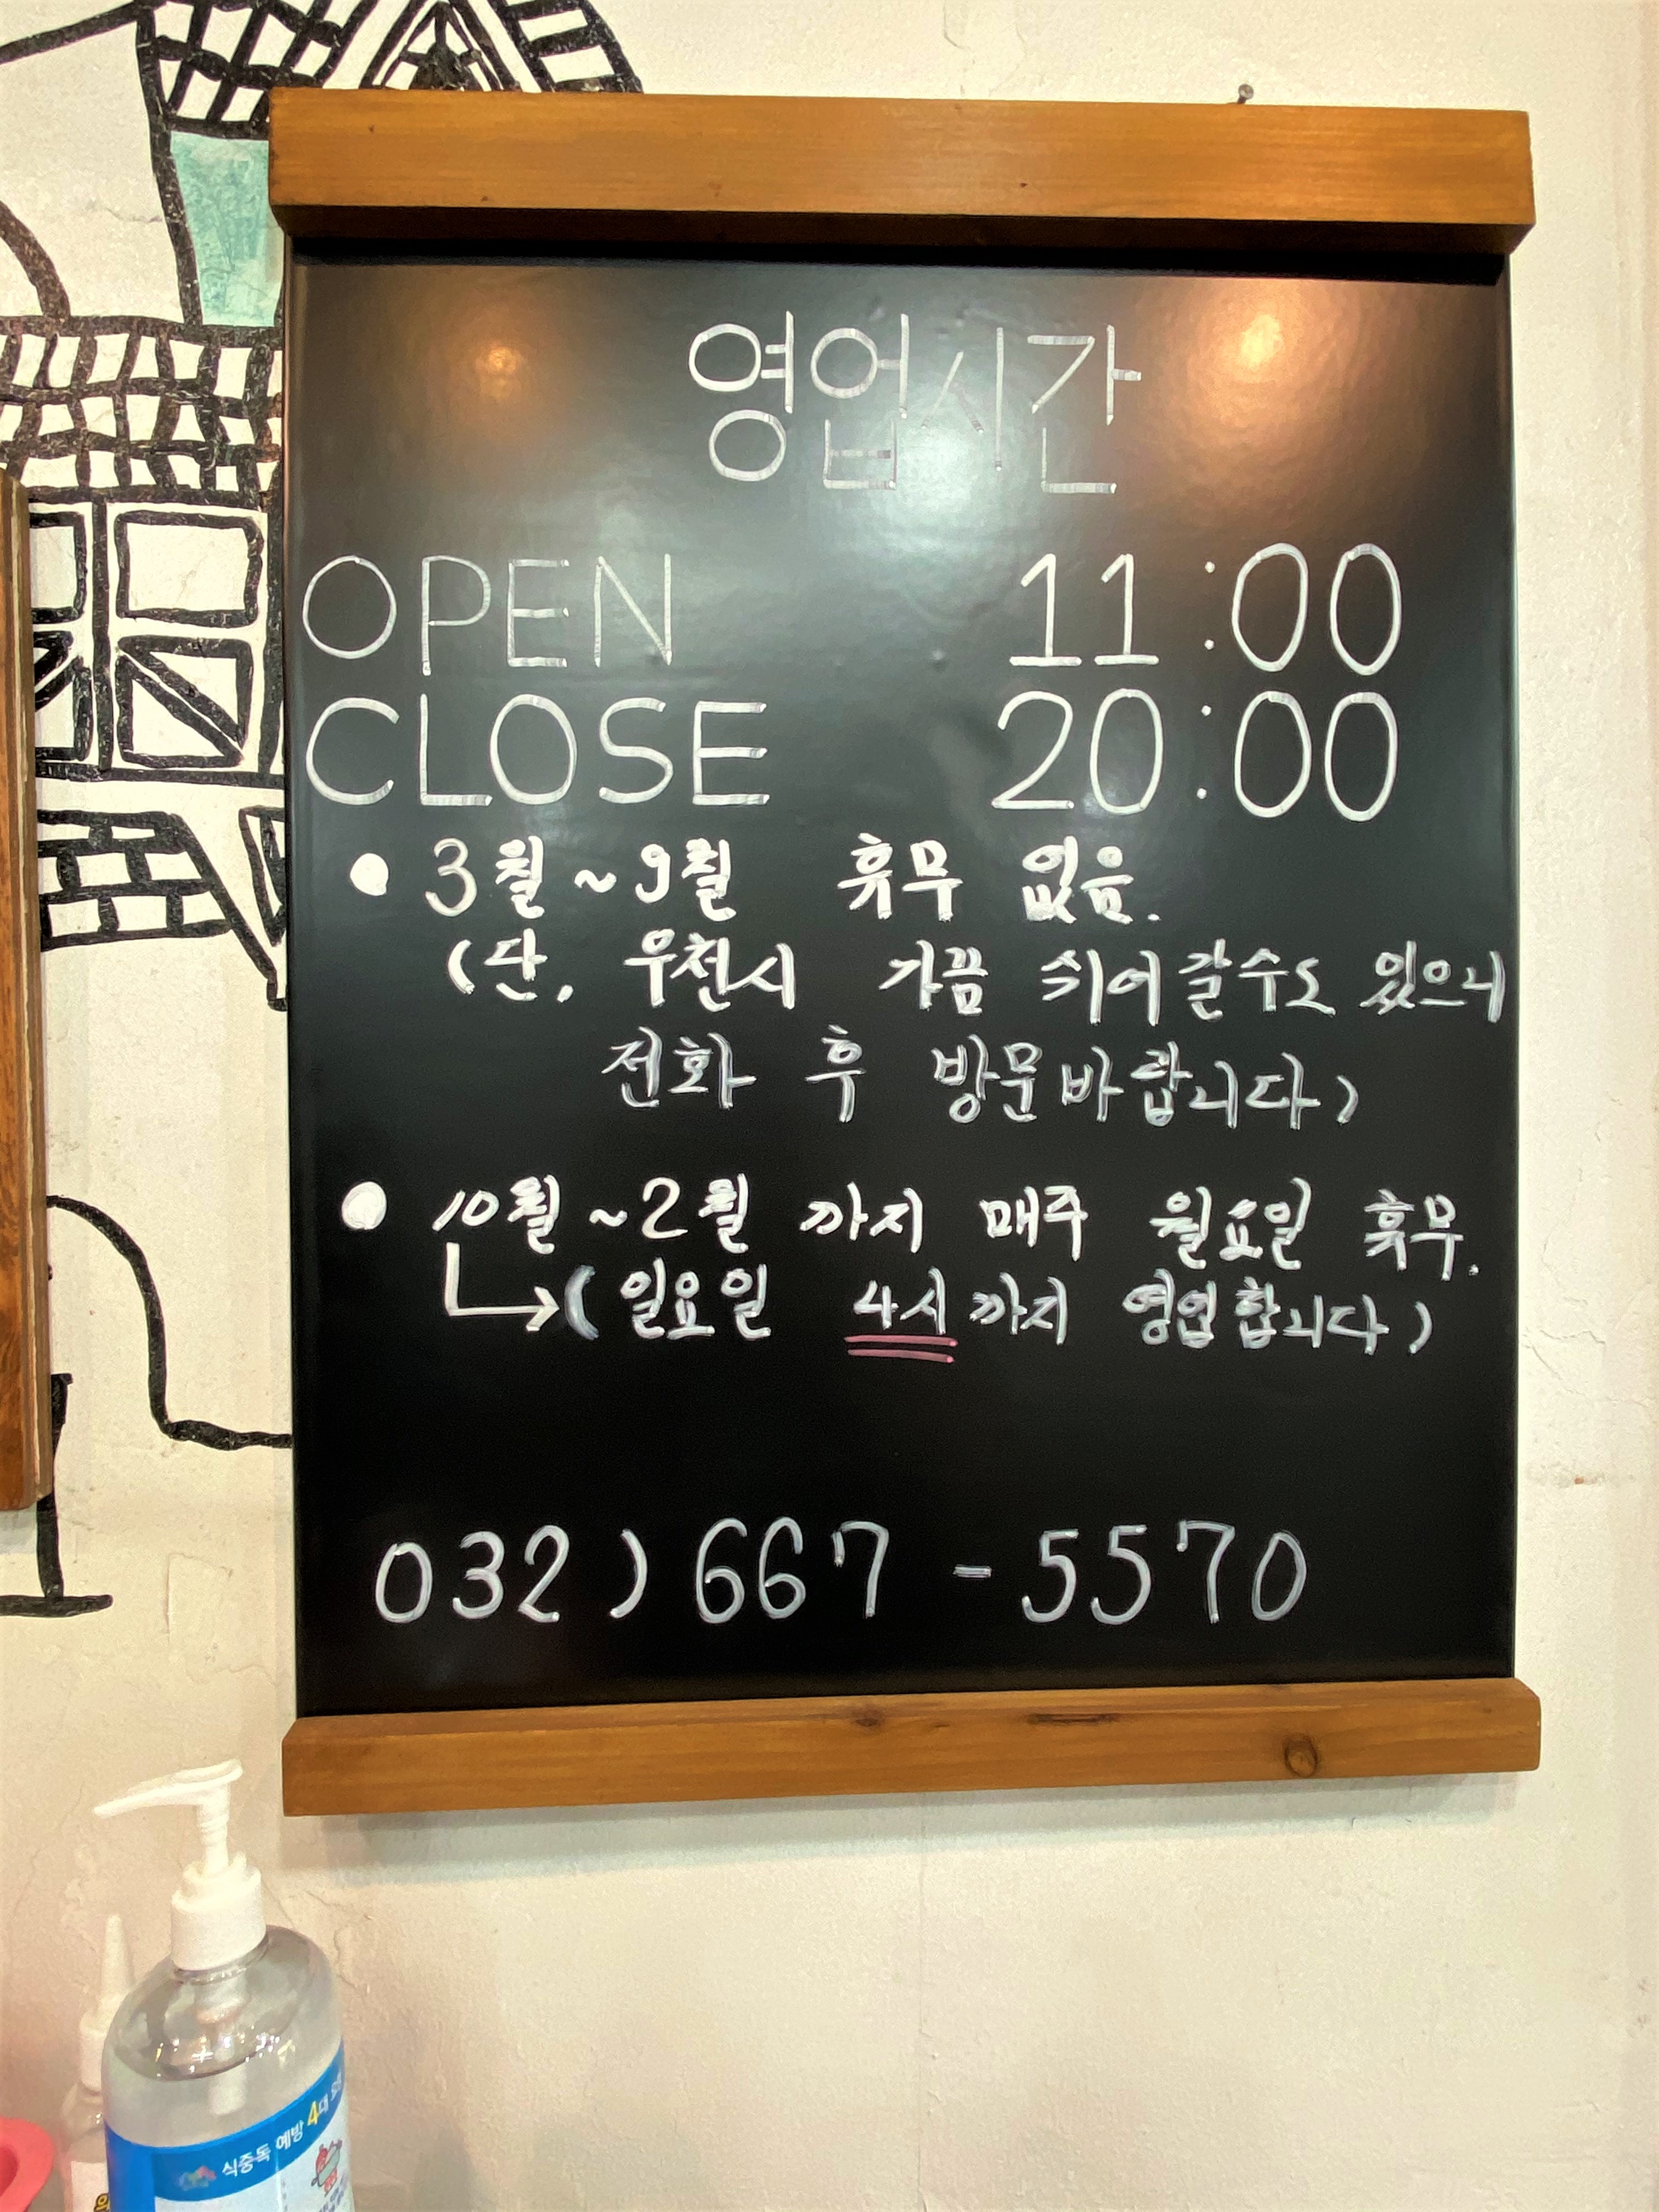 영업시간
OPEN 11:00
CLOSE 20:00
● 3월~9월 휴무 없음.
(단, 우천시 가끔 쉬어갈수도 있으니
전화 후 방문바랍니다)
● 10월~2월 까지 매주 월요일 휴무.
→(일요일 4시까지 영업합니다)
032)667-5570
식중독 예방 4대